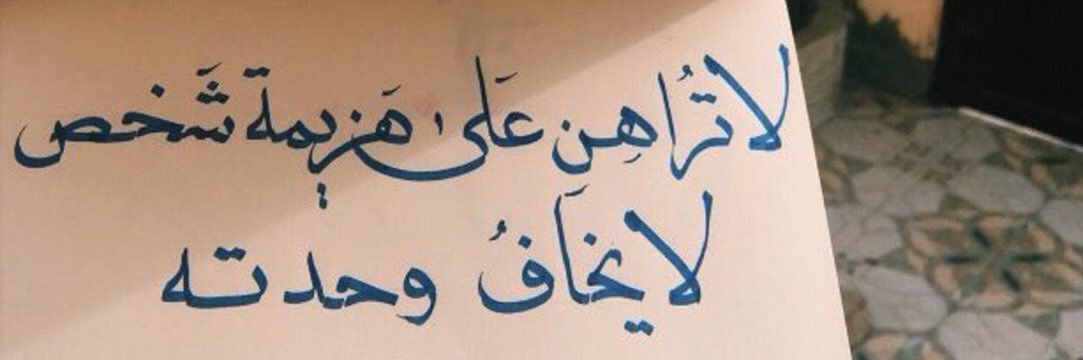 لا تُراهِن عَلى هَزيمة شَخص
لا يخَافُ وحدته